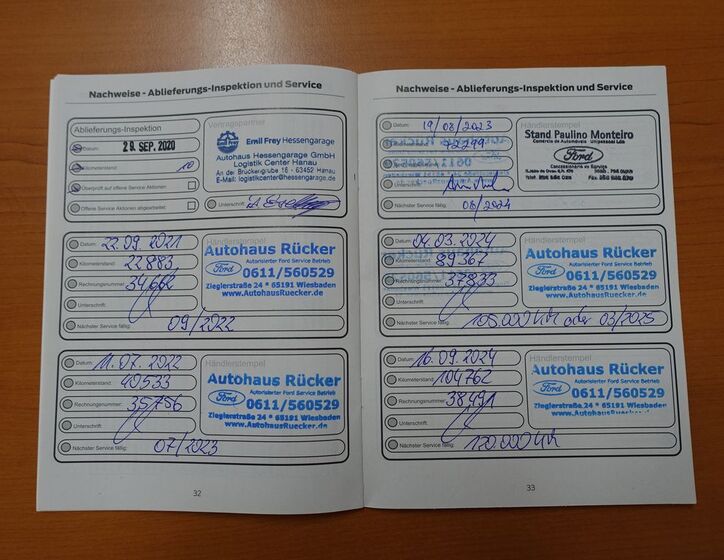 Nachweise - Ablieferungs-Inspektion und Service
Ablieferungs-Inspektion
Datum: 29. SEP. 2020
Kilometerstand: 10
Überprüft auf offene Service Aktionen
Offene Service Aktionen abgearbeitet:
Vertragspartner
Emil Frey Hessengarage
Autohaus Hessengarage GmbH
Logistik Center Hanau
An der Brückengrube 16 - 63452 Hanau
E-Mail: logistikcenter@hessengarage.de
Unterschrift:
Datum: 22.09.2021
Kilometerstand: 22883
Rechnungsnummer: 34662
Unterschrift:
Nächster Service fällig: 09/2022
Händlerstempel
Autohaus Rücker
Ford
Autorisierter Ford Service Betrieb
0611/560529
Zieglerstraße 24 * 65191 Wiesbaden
www.AutohausRuecker.de
Datum: 11.07.2022
Kilometerstand: 40533
Rechnungsnummer: 35756
Unterschrift:
Nächster Service fällig: 07/2023
Händlerstempel
Autohaus Rücker
Ford
Autorisierter Ford Service Betrieb
0611/560529
Zieglerstraße 24 * 65191 Wiesbaden
www.AutohausRuecker.de
32
Nachweise - Ablieferungs-Inspektion und Service
Datum: 19/08/2023
72299
Unterschrift:
Nächster Service fällig: 08/2024
Händlerstempel
Stand Paulino Monteiro
Comércio de Automóveis Unipessoal Lda
Ford
Concessionário de Serviço
Datum: 04.03.2024
Kilometerstand: 89367
Rechnungsnummer: 37833
Unterschrift:
Nächster Service fällig: 105.000 KM oder 03/2025
Händlerstempel
Autohaus Rücker
Ford
Autorisierter Ford Service Betrieb
0611/560529
Zieglerstraße 24 * 65191 Wiesbaden
www.AutohausRuecker.de
Datum: 16.09.2024
Kilometerstand: 104762
Rechnungsnummer: 38491
Unterschrift:
Nächster Service fällig: 120.000 KM
Händlerstempel
Autohaus Rücker
Ford
Autorisierter Ford Service Betrieb
0611/560529
Zieglerstraße 24 * 65191 Wiesbaden
www.AutohausRuecker.de
33